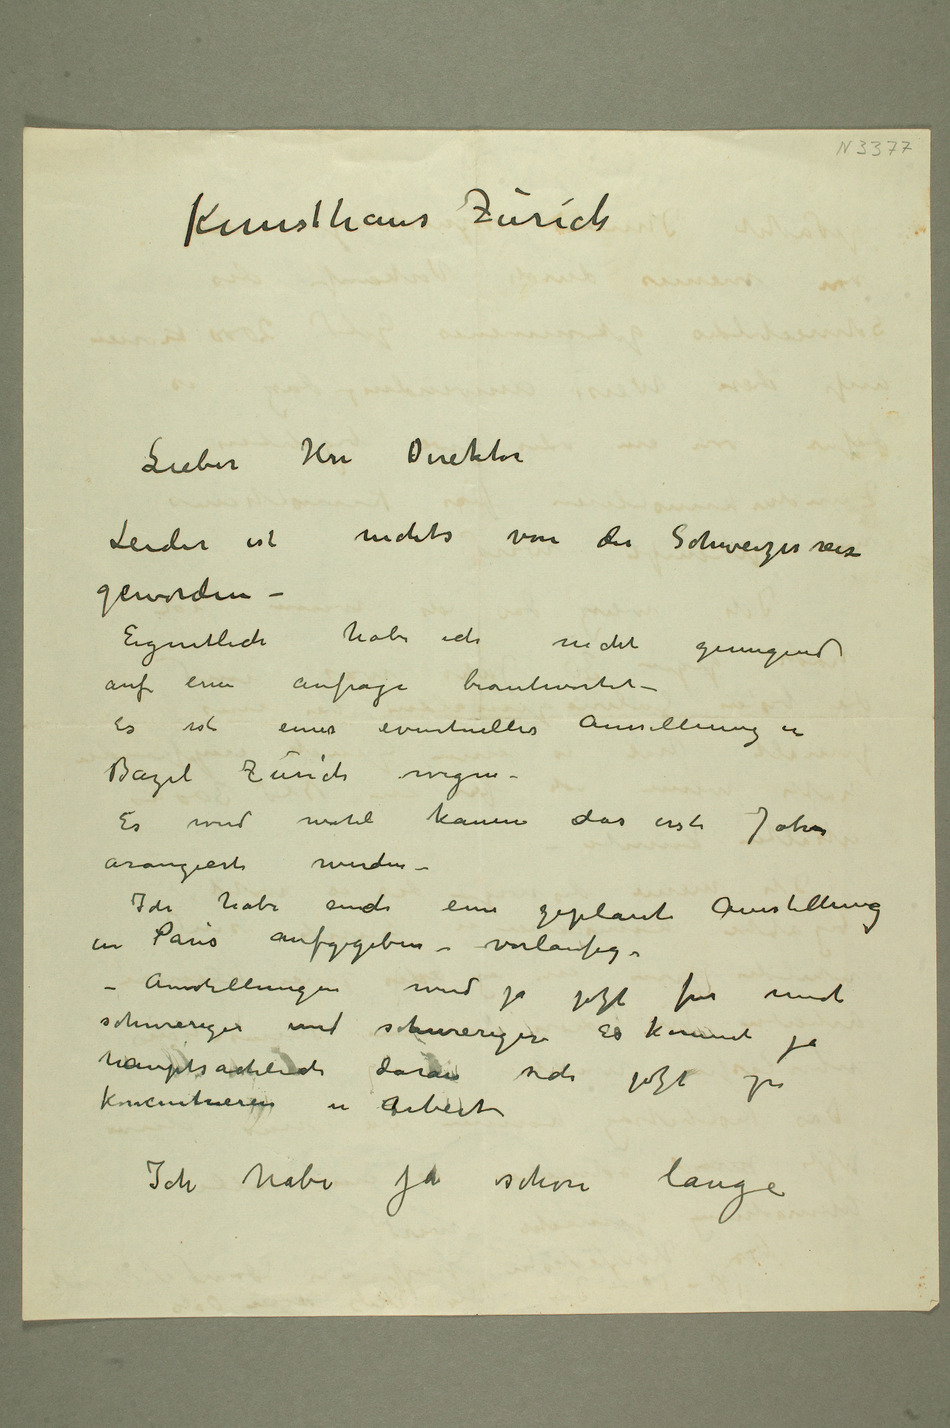 N 3377
Kunsthaus Zürich
Lieber Herr Direktor
Leider ist nichts von der Schweizerreise
geworden –
Eigentlich habe ich nicht genugend
auf eine anfrage beantwortet –
Es ist eines eventuelles Ausstellung in
Bazel Zürich wegen –
Es wird wohl kaum das erste Jahr
arangiert werden –
Ich habe auch eine geplante Ausstellung
in Paris aufgegeben – vorläufig –
– Ausstellungen wird ja jetzt fur mich
schwieriger und schwieriger Es kommt ja
hauptsächlich daran sich jetzt zu
koncentrieren in Arbeit –
Ich habe ja schon lange